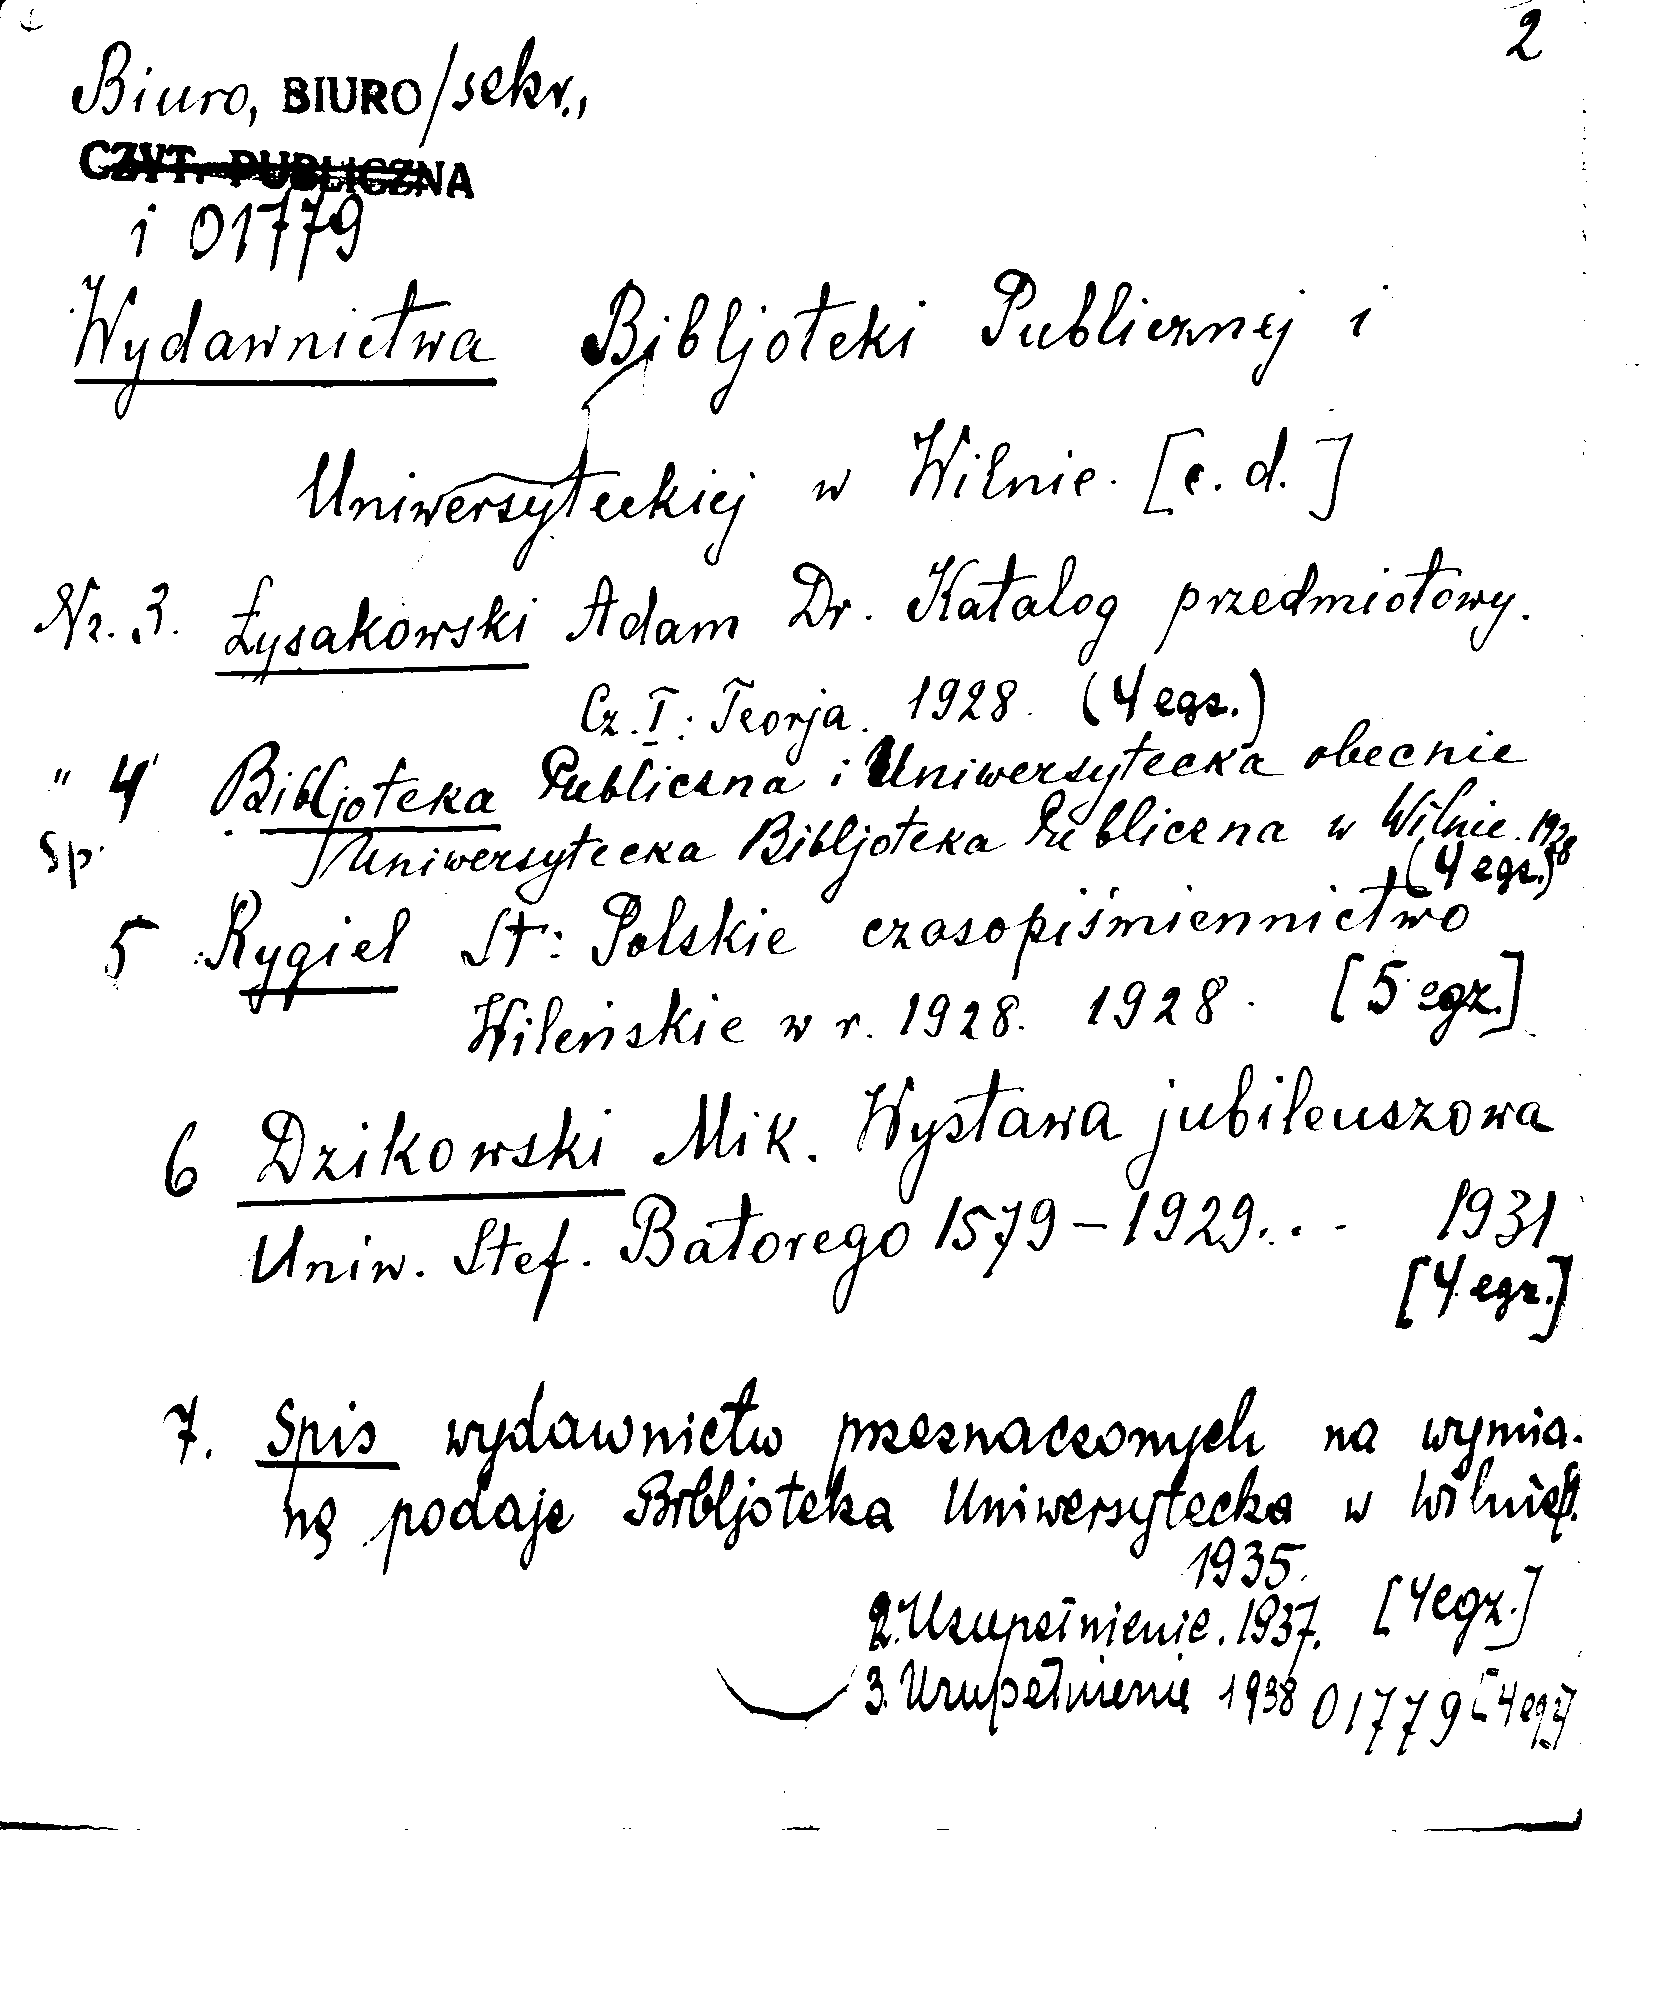 2
Biuro, BIURO/sekr.,
CZYT. PUBLICZNA
i 01779
Wydawnictwa Bibljoteki Publicznej i
Uniwersyteckiej w Wilnie. [c. d.]
Nr. 3. Łysakowski Adam Dr. Katalog przedmiotowy.
Cz. I: Teorja. 1928. (4 egz.)
" 4 Bibljoteka Publiczna i Uniwersytecka obecnie
Sp. Uniwersytecka Bibljoteka Publiczna w Wilnie. 1928
(4 egz.)
5 Rygiel St: Polskie czasopiśmiennictwo
Wileńskie w r. 1928. 1928. [5 egz.]
6 Dzikowski Mik. Wystawa jubileuszowa
Uniw. Stef. Batorego 1579–1929... 1931
[4 egz.]
7. Spis wydawnictw przeznaczonych na wymia-
nę podaje Bibljoteka Uniwersytecka w Wilnie
1935.
2. Uzupełnienie. 1937. [4 egz.]
3. Uzupełnienie 1938 01779 [4 egz]